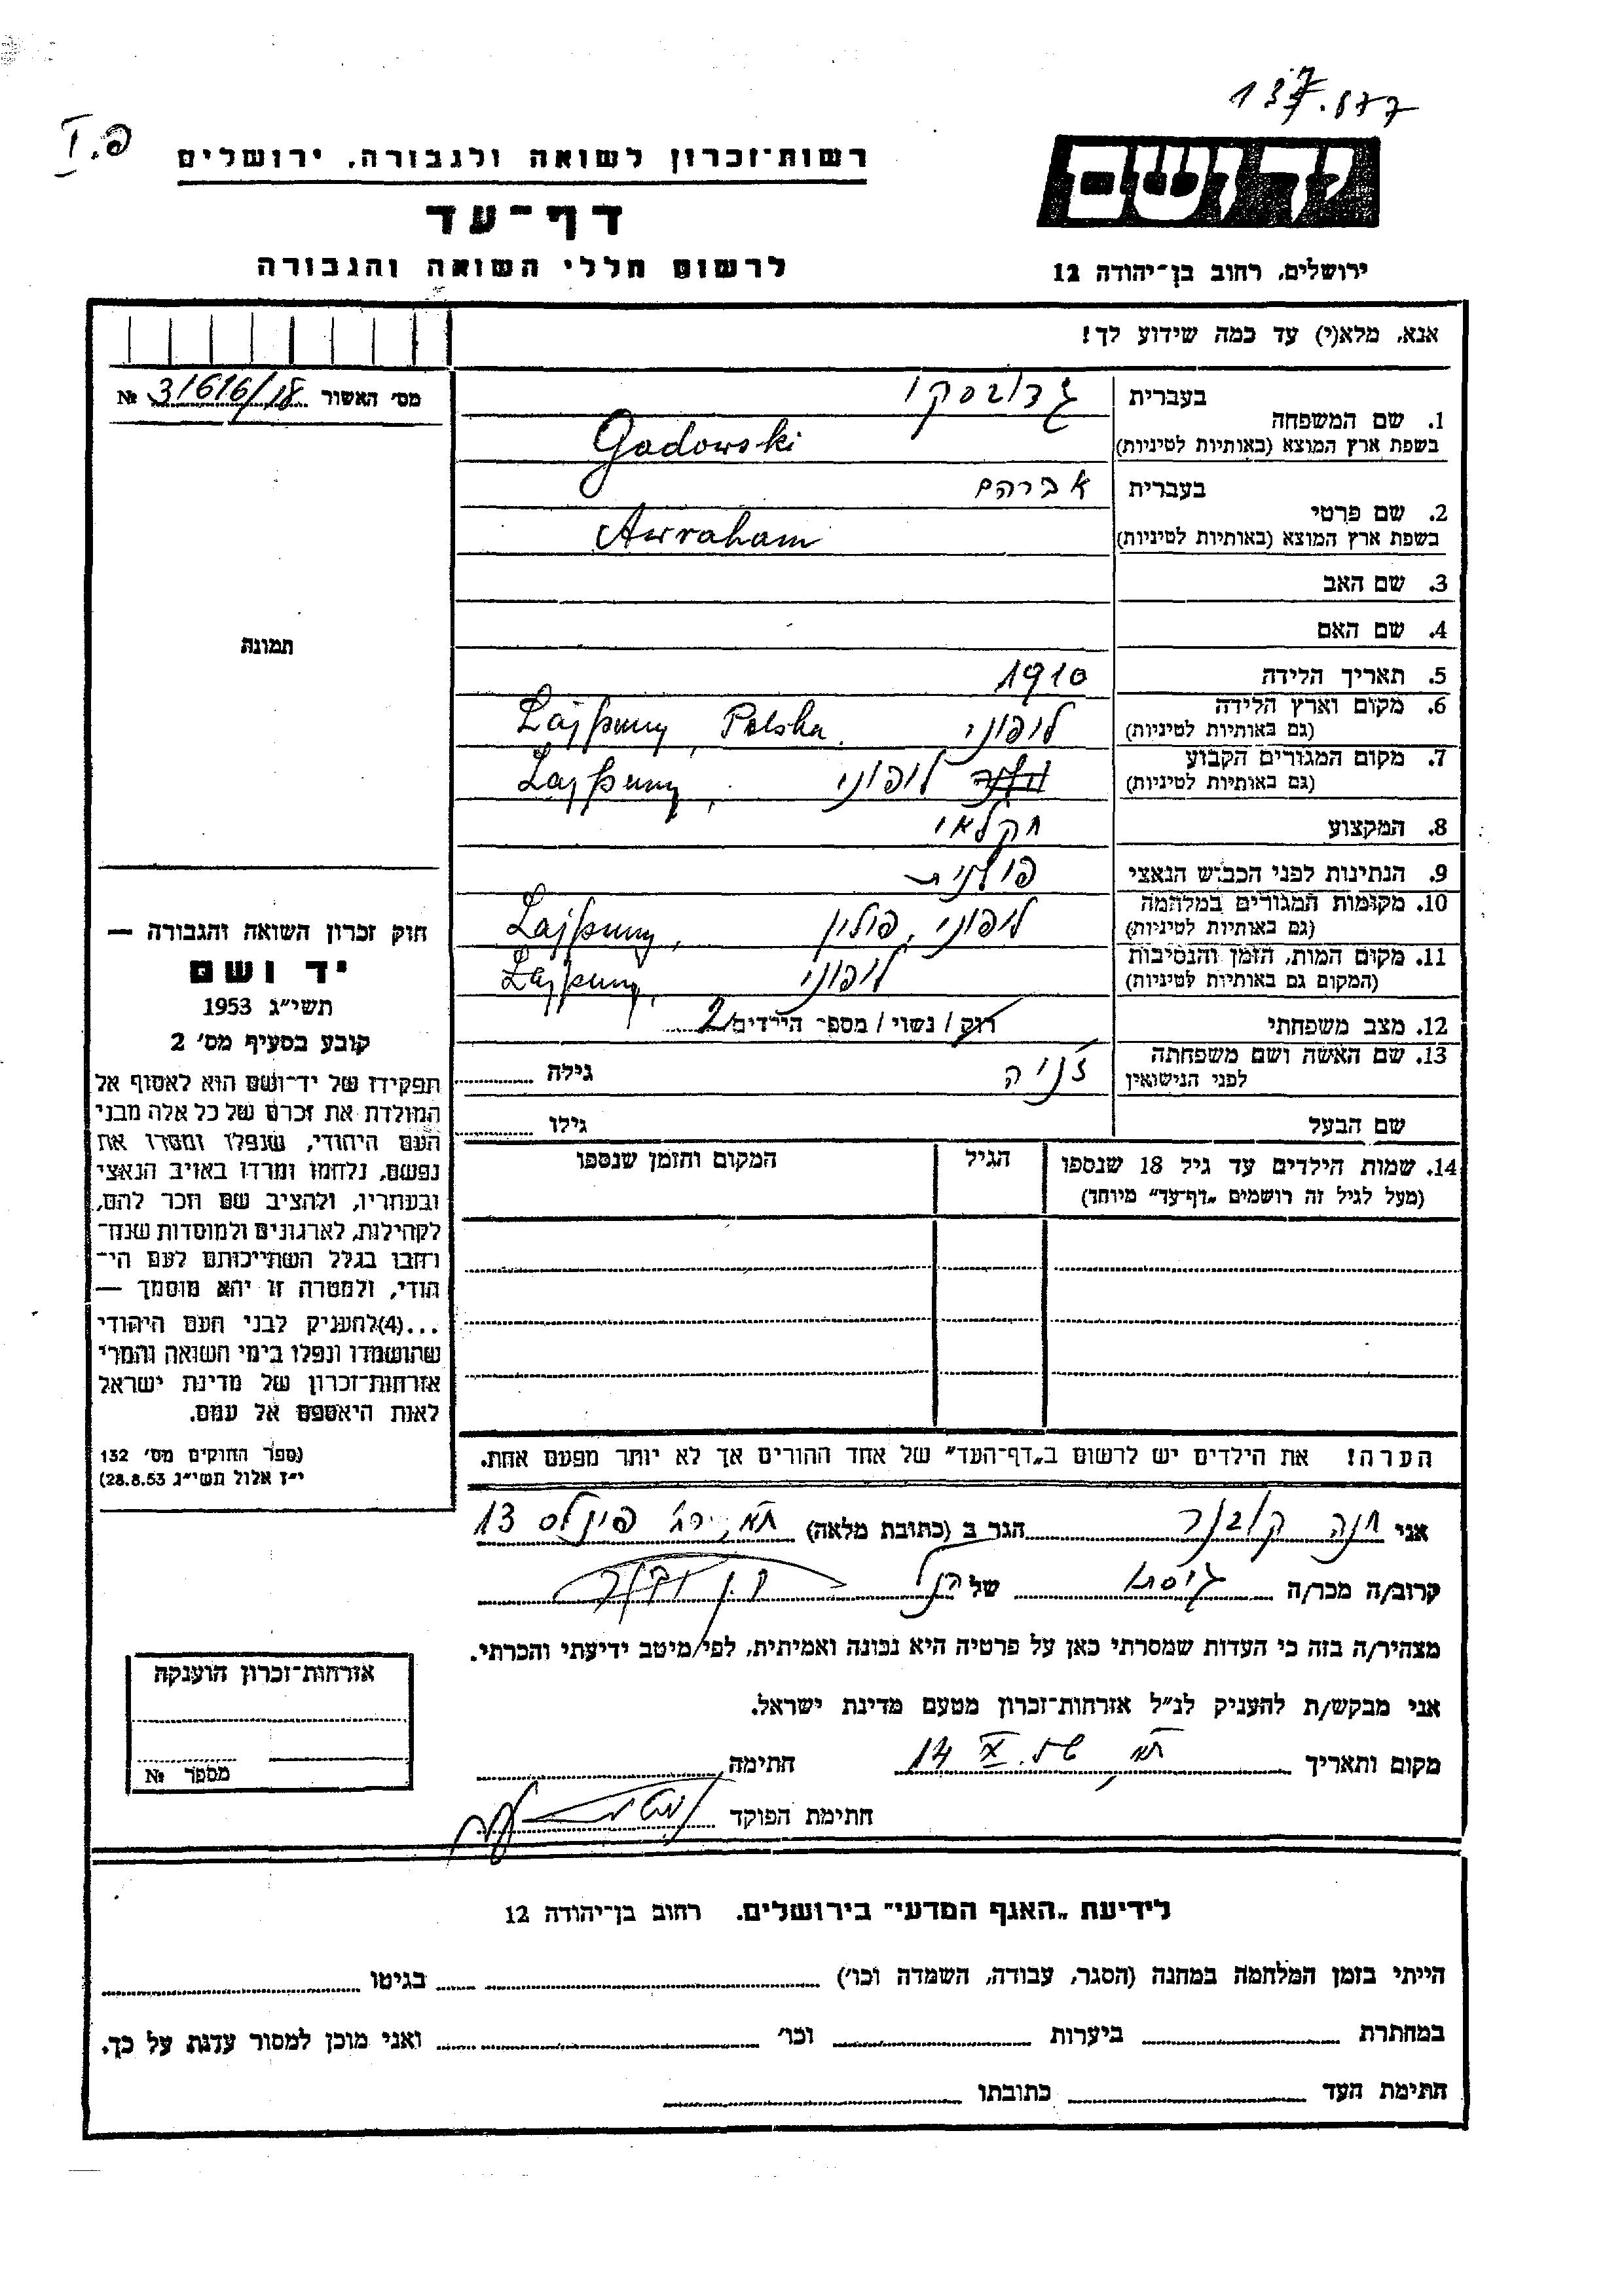 137.877
פ. I
יד ושם
רשות־זכרון לשואה ולגבורה, ירושלים
דף־עד
לרשום חללי השואה והגבורה
ירושלים, רחוב בן־יהודה 12
אנא, מלא(י) עד כמה שידוע לך!
מס׳ האשור 31616/18 №
תמונה
1. שם המשפחה בעברית גדובסקי
בשפת ארץ המוצא (באותיות לטיניות) Gadowski
2. שם פרטי בעברית אברהם
בשפת ארץ המוצא (באותיות לטיניות) Awraham
3. שם האב
4. שם האם
5. תאריך הלידה 1910
6. מקום וארץ הלידה לופוני Łajpuny, Polska
(גם באותיות לטיניות)
7. מקום המגורים הקבוע לופוני Łajpuny,
(גם באותיות לטיניות)
8. המקצוע חקלאי
9. הנתינות לפני הכבוש הנאצי פולנית
10. מקומות המגורים במלחמה ליפוני, פולין Łajpuny,
(גם באותיות לטיניות)
11. מקום המות, הזמן והנסיבות לופוני Łajpuny,
(המקום גם באותיות לטיניות)
12. מצב משפחתי רוק / נשוי / מספר הילדים 2
13. שם האשה ושם משפחתה ז׳ניה גילה
לפני הנישואין
שם הבעל גילו
14. שמות הילדים עד גיל 18 שנספו הגיל המקום והזמן שנספו
(מעל לגיל זה רושמים „דף־עד” מיוחד)
חוק זכרון השואה והגבורה —
יד ושם
תשי״ג 1953
קובע בסעיף מס׳ 2
תפקידו של יד־ושם הוא לאסוף אל
המולדת את זכרם של כל אלה מבני
העם היהודי, שנפלו ומסרו את
נפשם, נלחמו ומרדו באויב הנאצי
ובעוזריו, ולהציב שם וזכר להם,
לקהילות, לארגונים ולמוסדות שנח־
רבו בגלל השתייכותם לעם הי־
הודי, ולמטרה זו יהא מוסמך —
...(4) להעניק לבני העם היהודי
שהושמדו ונפלו בימי השואה והמרי
אזרחות־זכרון של מדינת ישראל
לאות היאספם אל עמם.
(ספר החוקים מס׳ 132
י״ז אלול תשי״ג 28.8.53)
הערה! את הילדים יש לרשום ב„דף־העד” של אחד ההורים אך לא יותר מפעם אחת.
אני חנה קובנר הגר ב (כתובת מלאה) פינלס 13
קרוב/ה מכר/ה גיסה של הנ״ל
מצהיר/ה בזה כי העדות שמסרתי כאן על פרטיה היא נכונה ואמיתית, לפי מיטב ידיעתי והכרתי.
אני מבקש/ת להעניק לנ״ל אזרחות־זכרון מטעם מדינת ישראל.
מקום ותאריך 14 X חתימה
חתימת הפוקד
אזרחות־זכרון הוענקה
מספר №
לידיעת „האגף המדעי” בירושלים. רחוב בן־יהודה 12
הייתי בזמן המלחמה במחנה (הסגר, עבודה, השמדה וכו׳) בגיטו
במחתרת ביערות וכו׳ ואני מוכן למסור עדות על כך.
חתימת העד כתובתו